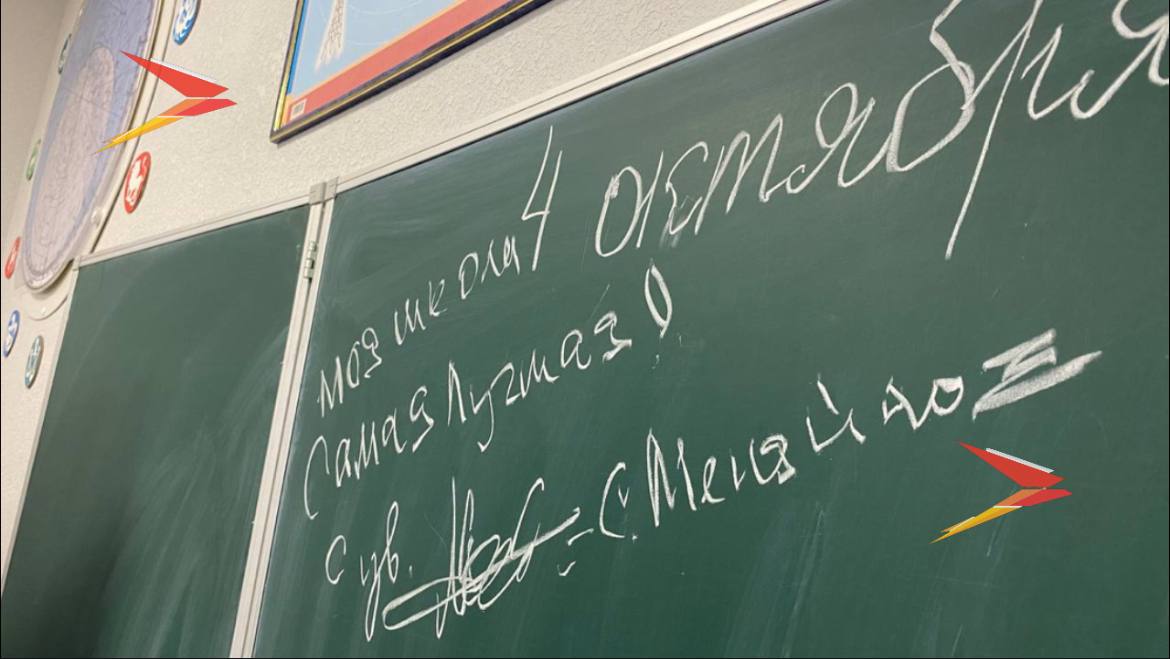 4 октября
моя школа
Самая Лучшая !
С ув. С. Меняйло